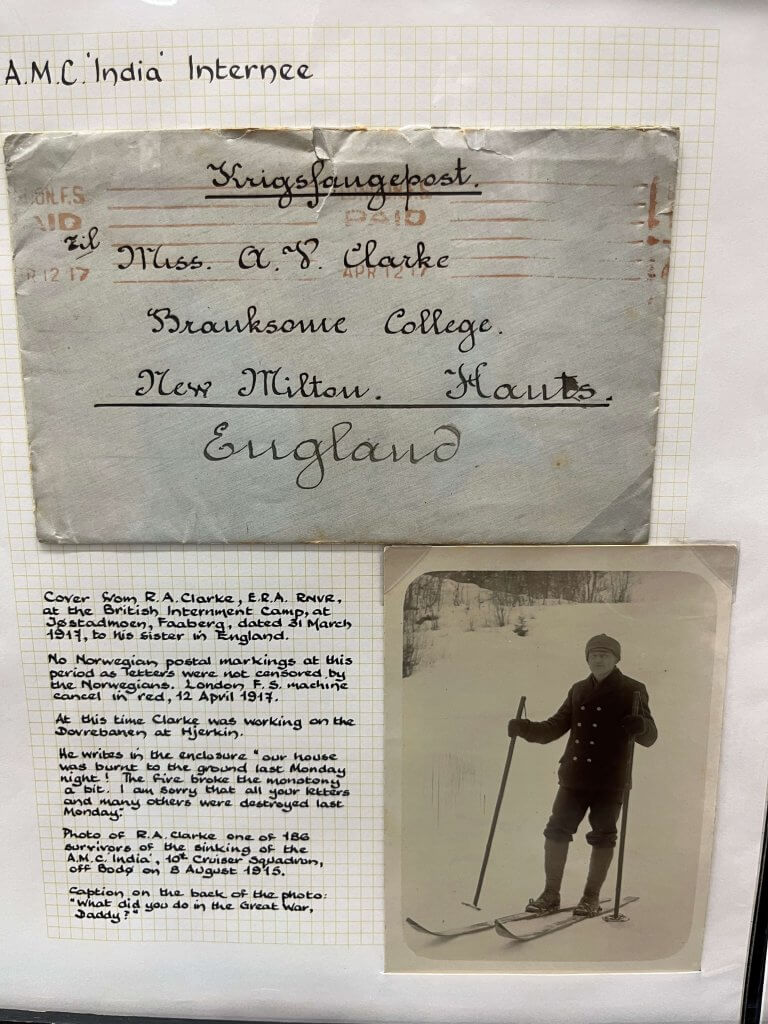 A.M.C. 'India' Internee
Krigsfangepost.
ON.F.S
AID
PAID
R 12 17
APR 12 17
Til Miss. A. V. Clarke
Branksome College.
New Milton. Hants.
England
Cover from R.A.Clarke, E.R.A. RNVR,
at the British Internment Camp, at
Jøstadmoen, Faaberg, dated 31 March
1917, to his sister in England.
No Norwegian postal markings at this
period as letters were not censored by
the Norwegians. London F.S. machine
cancel in red, 12 April 1917.
At this time Clarke was working on the
Dovrebanen at Hjerkin.
He writes in the enclosure "our house
was burnt to the ground last Monday
night! The fire broke the monotony
a bit. I am sorry that all your letters
and many others were destroyed last
Monday."
Photo of R.A.Clarke one of 186
survivors of the sinking of the
A.M.C.'India', 10th Cruiser Squadron,
off Bodø on 8 August 1915.
Caption on the back of the photo:
"What did you do in the Great War,
Daddy?"